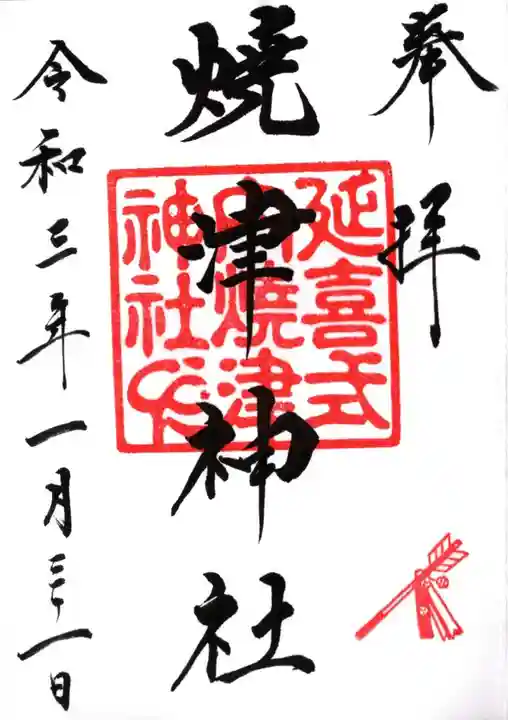 奉拝
燒津神社
延喜式
内燒津
神社印
令和三年一月三十一日